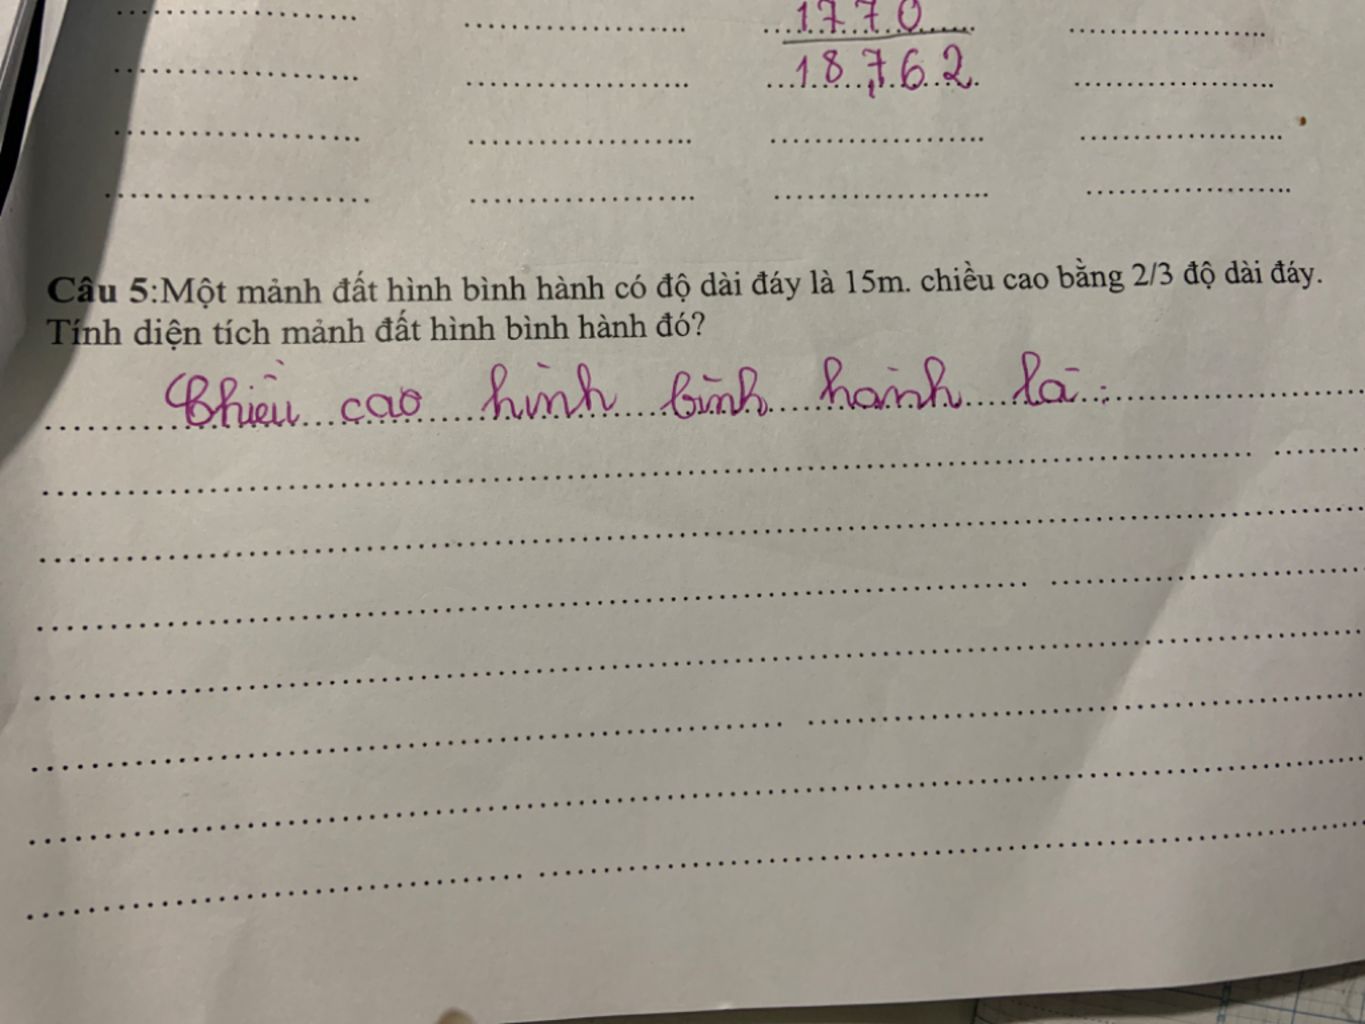 1770
18,762
Câu 5:Một mảnh đất hình bình hành có độ dài đáy là 15m. chiều cao bằng 2/3 độ dài đáy.
Tính diện tích mảnh đất hình bình hành đó?
Chiều cao hình bình hành là: